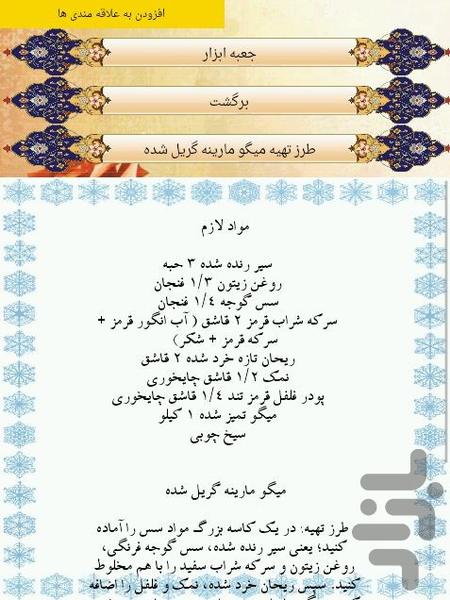 افزودن به علاقه مندی ها
جعبه ابزار
برگشت
طرز تهیه میگو مارینه گریل شده
مواد لازم
سیر رنده شده ۳ حبه
روغن زیتون ۱/۳ فنجان
سس گوجه ۱/٤ فنجان
سرکه شراب قرمز ۲ قاشق ( آب انگور قرمز +
سرکه قرمز + شکر)
ریحان تازه خرد شده ۲ قاشق
نمک ۱/۲ قاشق چایخوری
پودر فلفل قرمز تند ۱/٤ قاشق چایخوری
میگو تمیز شده ۱ کیلو
سیخ چوبی
میگو مارینه گریل شده
طرز تهیه: در یک کاسه بزرگ مواد سس را آماده
کنید؛ یعنی سیر رنده شده، سس گوجه فرنگی،
روغن زیتون و سرکه شراب سفید را با هم مخلوط
کنید. سپس ریحان خرد شده، نمک و فلفل را اضافه
بازار